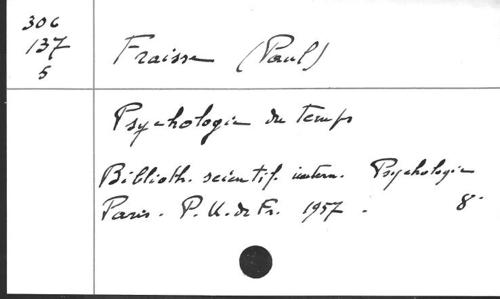 306
137
5
Fraisse (Paul)
Psychologie du temps
Biblioth. scientif. intern. Psychologie
Paris. P.U.de Fr. 1957. 8°